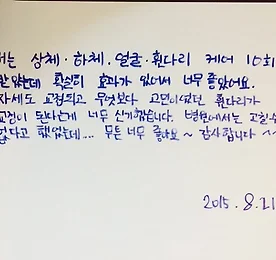 저는 상체·하체·얼굴·휜다리 케어 10회
받았는데 확실히 효과가 있어서 너무 좋았어요.
자세도 교정되고 무엇보다 고민이었던 휜다리가
교정이 된다는게 너무 신기했습니다. 병원에서는 고칠수
없다고 했었는데... 무튼 너무 좋아요~ 감사합니다~~
2015. 8. 21